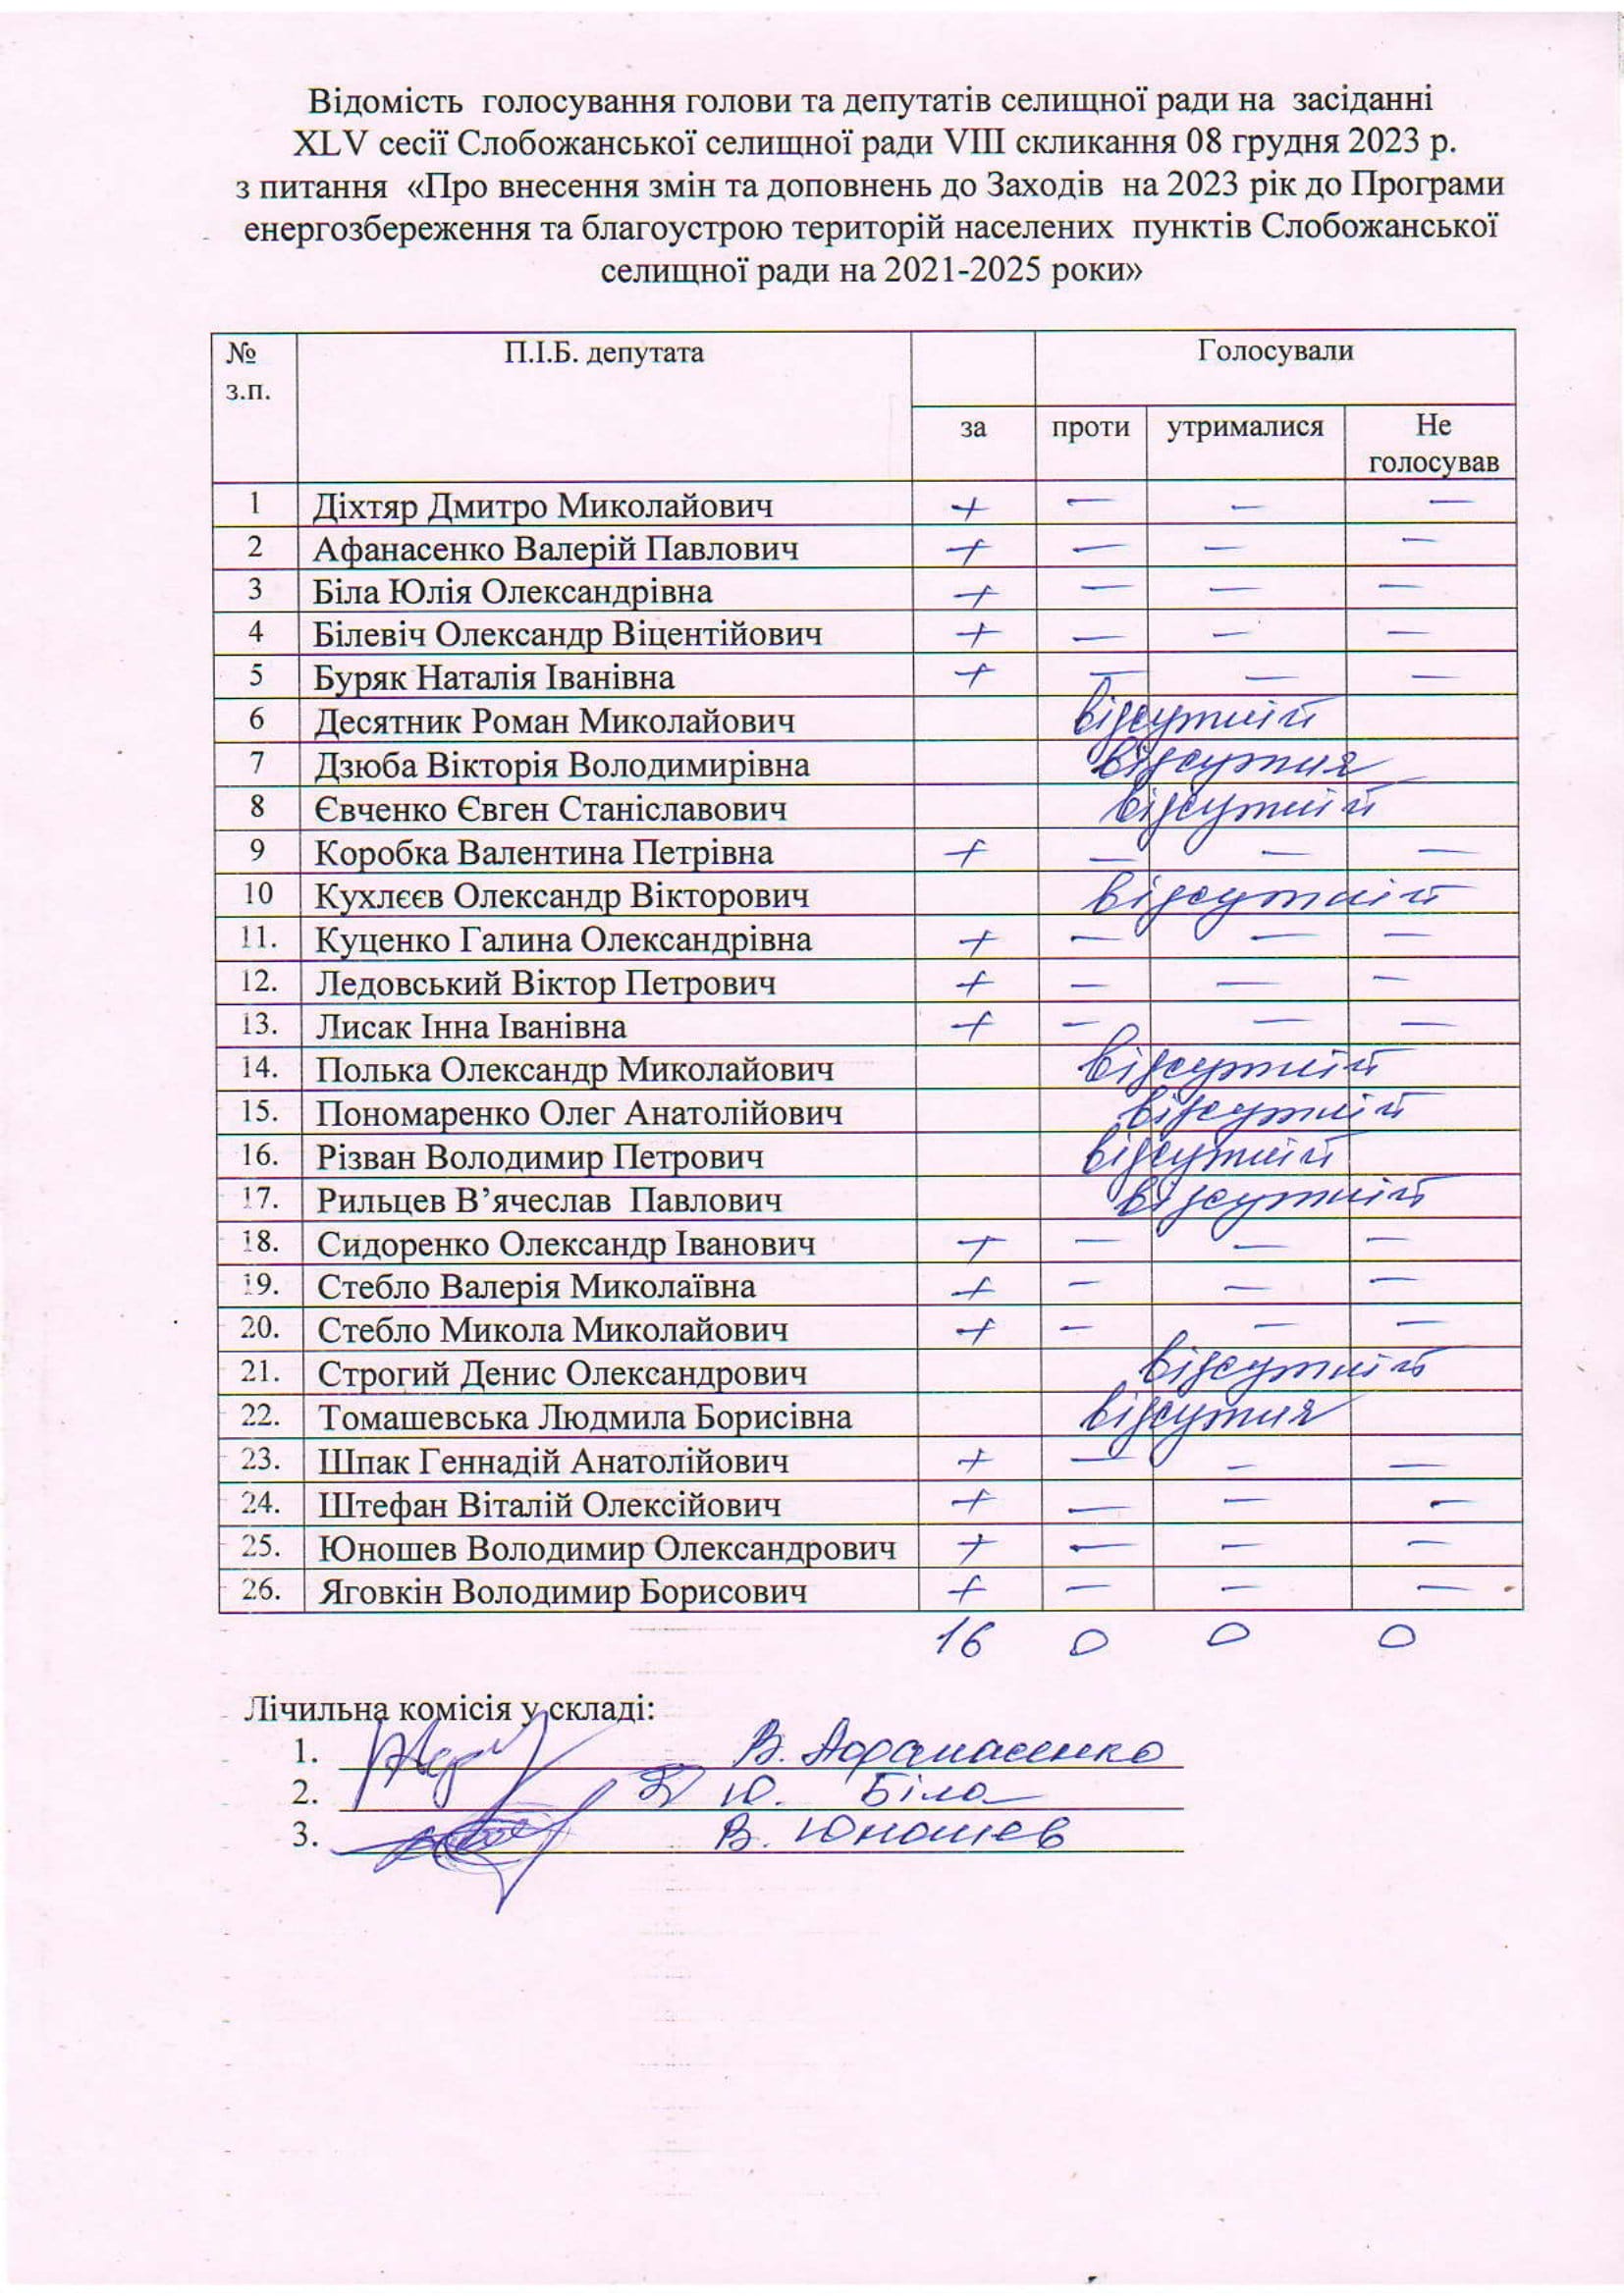 Відомість голосування голови та депутатів селищної ради на засіданні
XLV сесії Слобожанської селищної ради VIII скликання 08 грудня 2023 р.
з питання «Про внесення змін та доповнень до Заходів на 2023 рік до Програми
енергозбереження та благоустрою територій населених пунктів Слобожанської
селищної ради на 2021-2025 роки»
№ з.п. П.І.Б. депутата Голосували
за проти утрималися Не голосував
1 Діхтяр Дмитро Миколайович + — — —
2 Афанасенко Валерій Павлович + — — —
3 Біла Юлія Олександрівна + — — —
4 Білевіч Олександр Віцентійович + — — —
5 Буряк Наталія Іванівна + — — —
6 Десятник Роман Миколайович відсутній
7 Дзюба Вікторія Володимирівна відсутня
8 Євченко Євген Станіславович відсутній
9 Коробка Валентина Петрівна + — — —
10 Кухлєєв Олександр Вікторович відсутній
11. Куценко Галина Олександрівна + — — —
12. Ледовський Віктор Петрович + — — —
13. Лисак Інна Іванівна + — — —
14. Полька Олександр Миколайович відсутній
15. Пономаренко Олег Анатолійович відсутній
16. Різван Володимир Петрович відсутній
17. Рильцев В’ячеслав Павлович відсутній
18. Сидоренко Олександр Іванович + — — —
19. Стебло Валерія Миколаївна + — — —
20. Стебло Микола Миколайович + — — —
21. Строгий Денис Олександрович відсутній
22. Томашевська Людмила Борисівна відсутня
23. Шпак Геннадій Анатолійович + — — —
24. Штефан Віталій Олексійович + — — —
25. Юношев Володимир Олександрович + — — —
26. Яговкін Володимир Борисович + — — —
16 0 0 0
Лічильна комісія у складі:
1. В. Афанасенко
2. Ю. Біла
3. В. Юношев